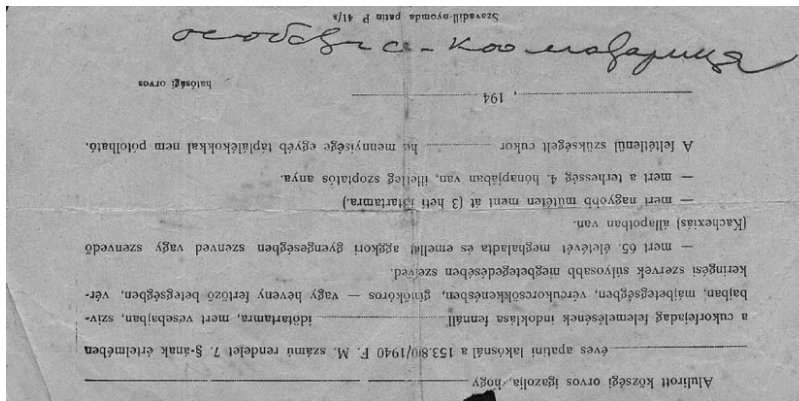 Alulirott községi orvos igazolja hogy
éves apatini lakósnál a 153.80/1940 F. M. számú rendelet 7. §-ának értelmében
a cukorfejadag felemelésének indoklása fennáll időtartamra, mert vesebajban, sziv-
bajban, májbetegségben, vércukorcsökkenésben, ginokóros — vagy heveny fertőző betegségben, vér-
keringési szervek súlyosabb megbetegedésében szenved.
— mert 65. életévét meghaladta és emellett aggkori gyengeségben szenved vagy szenvedő
(Kachexiás) állapotban van.
— mert nagyobb műtéten ment át (3 heti időtartamra.)
— mert a terhesség 4. hónapjában van, illetleg szoptatós anya.
A feltétlenül szükségelt cukor mennyisége egyéb táplálékokkal nem pótolható.
, 194
hatósági orvos
Szavadill-nyomda patin P 41/a